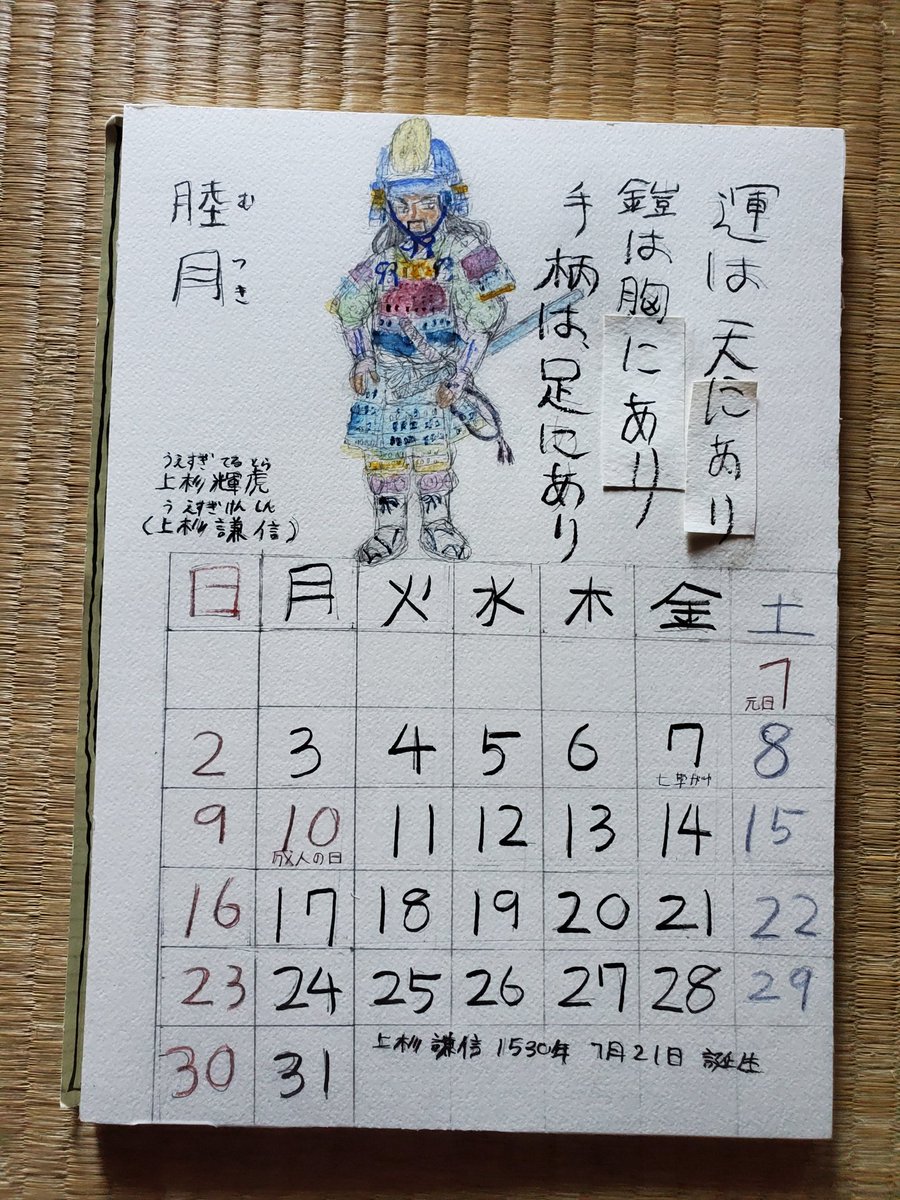 運は天にあり
鎧は胸にあり
手柄は、足にあり
睦月
むつき
うえすぎ てるとら
上杉輝虎
うえすぎけんしん
(上杉謙信)
日 月 火 水 木 金 土
1
元日
2 3 4 5 6 7 8
七草がゆ
9 10 11 12 13 14 15
成人の日
16 17 18 19 20 21 22
23 24 25 26 27 28 29
30 31
上杉謙信 1530年 1月21日 誕生